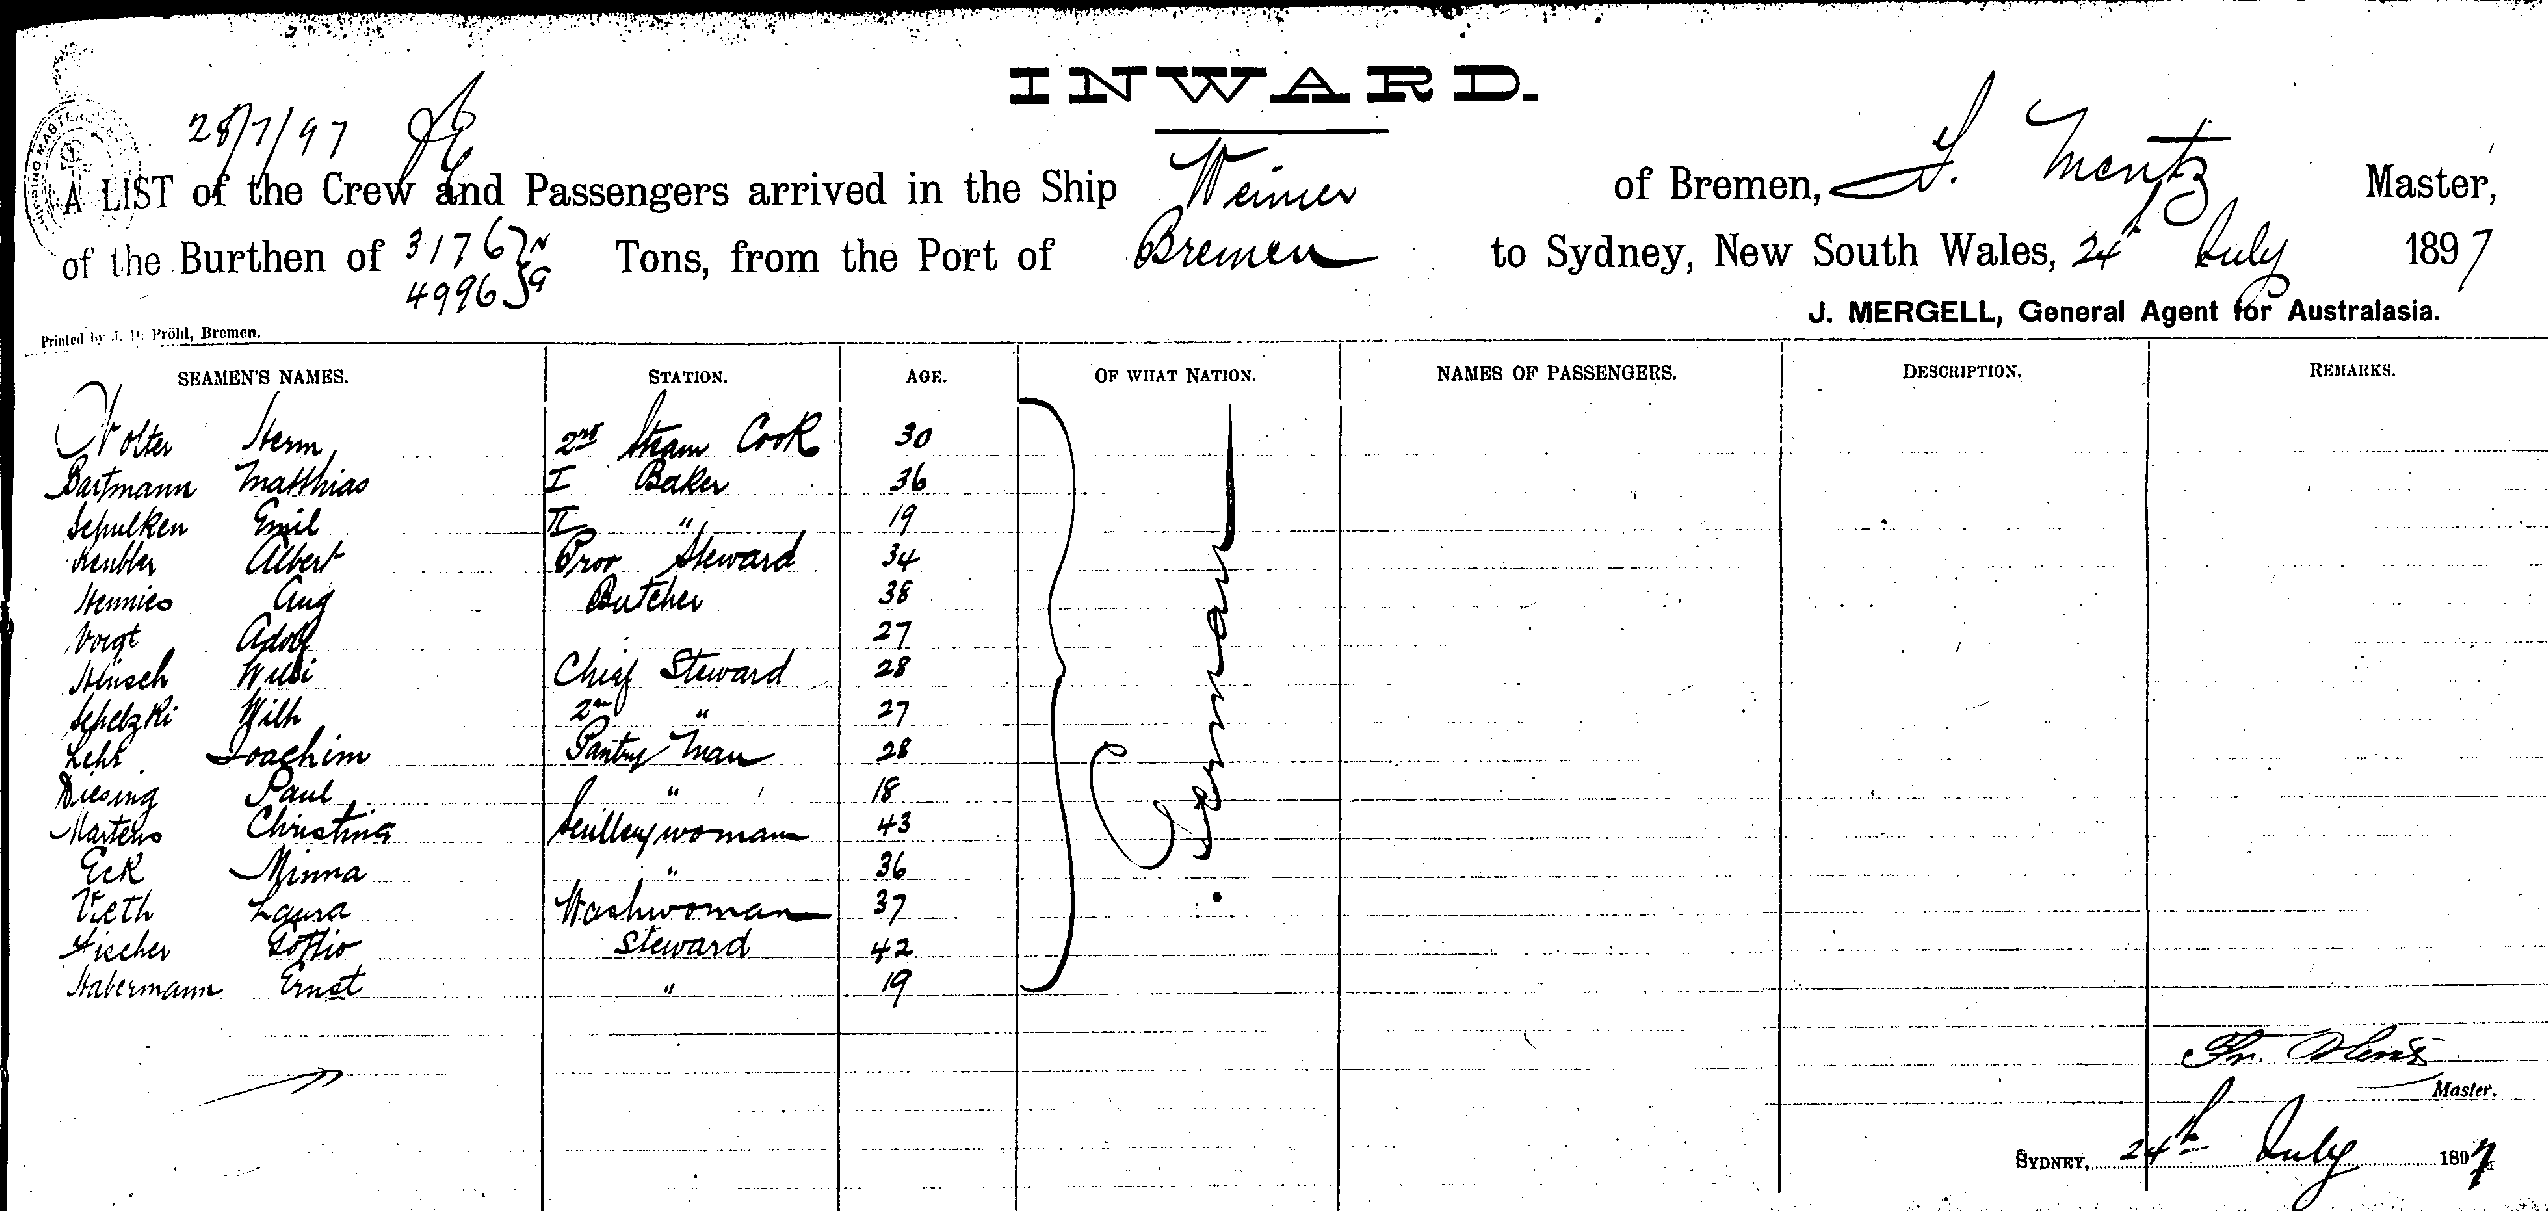 INWARD.
28/7/97
A LIST of the Crew and Passengers arrived in the Ship Weimar of Bremen, F. Mentz Master,
of the Burthen of 3176 N Tons, from the Port of Bremen to Sydney, New South Wales, 24th July 1897
4996 G
J. MERGELL, General Agent for Australasia.
Printed by J. H. Pröhl, Bremen.
SEAMEN'S NAMES. STATION. AGE. OF WHAT NATION. NAMES OF PASSENGERS. DESCRIPTION. REMARKS.
Wolter Herm 2nd Steam Cook 30
Bartmann Matthias I Baker 36
Schulken Emil II " 19
Albert Prov Steward 34
Hennies Aug Butcher 38
Voigt Adolf 27
Hinsch Willi Chief Steward 28
Schelzki Wilh 2nd " 27
Lehr Joachim Pantry Man 28
Diesing Paul " 18
Martens Christina Scullery woman 43
Eck Minna " 36
Vieth Laura Washwoman 37
Fischer Steward 42
Habermann Ernst " 19
German
Master.
SYDNEY, 24th July 1897